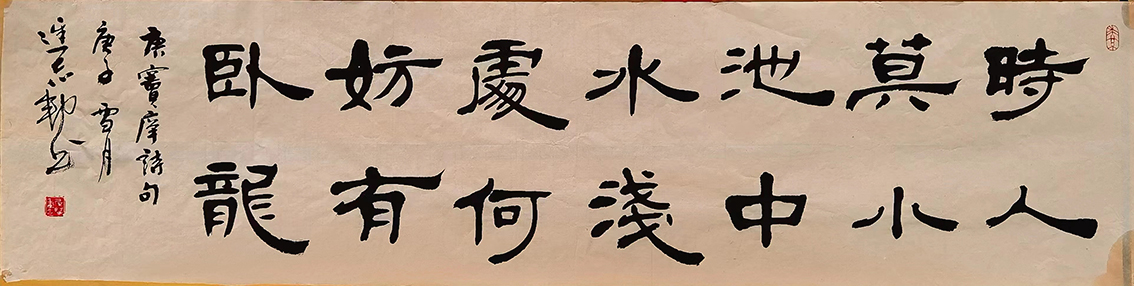 時人
莫小
池中
水淺
處何
妨有
臥龍
唐竇庠詩句
庚子雪月
書